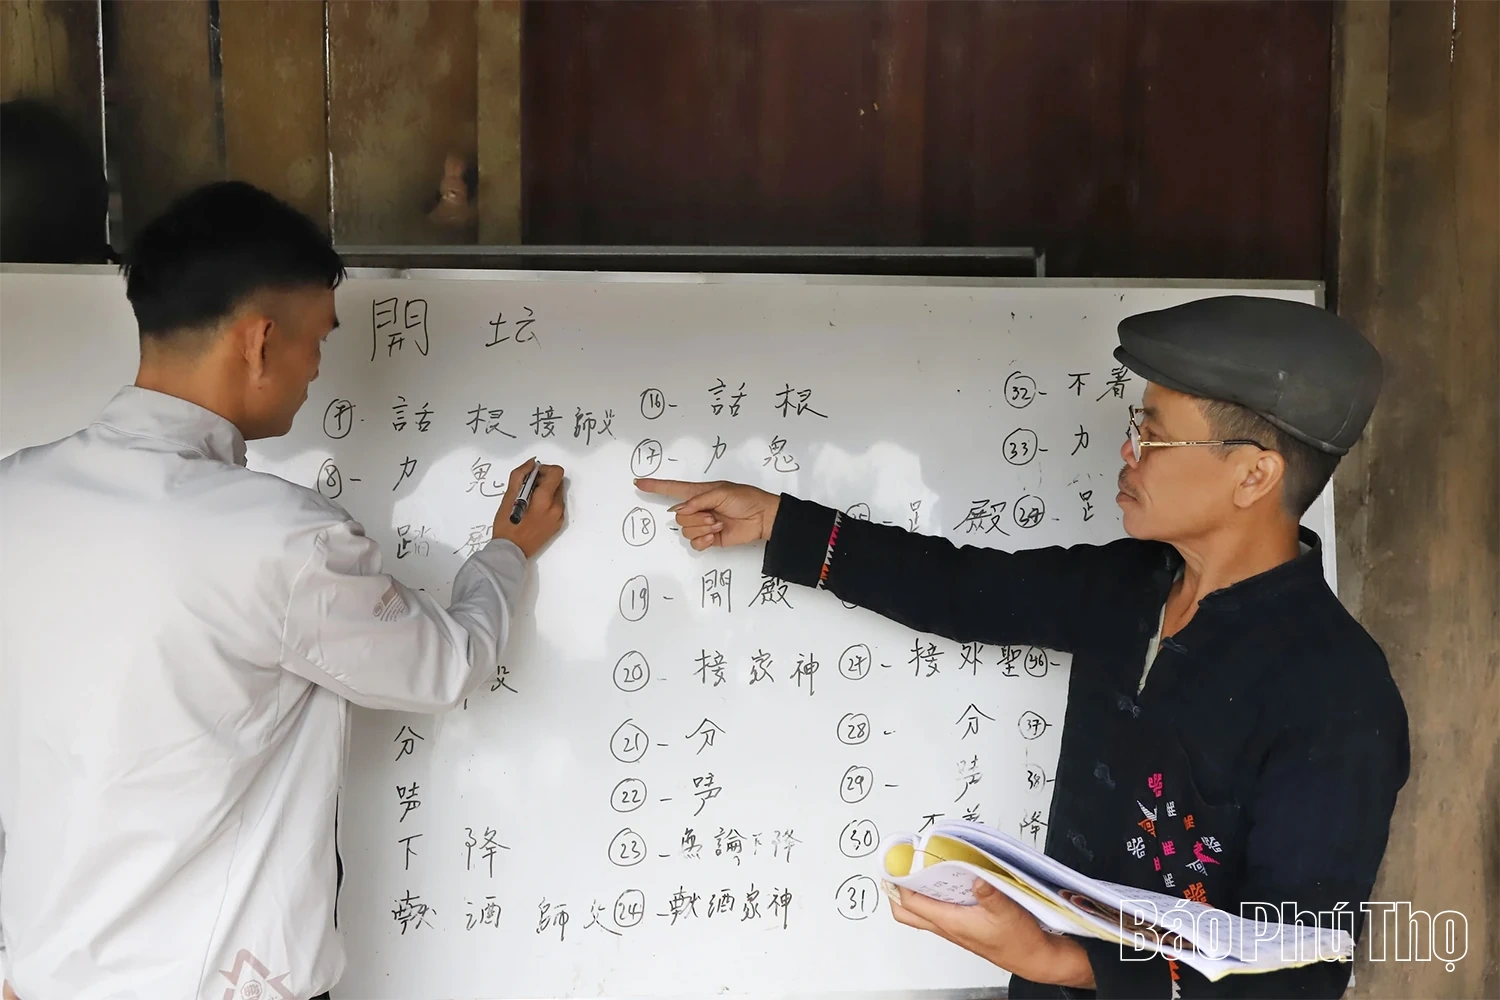 開 坛
7 話 根 接 師父
8 - 力 鬼
踏 殿
分
下 降
献 酒 師父
16 - 話 根
17 - 力 鬼
18
19 - 開 殿
20 - 接 家 神
21 - 分
22 -
23 - 無論下降
24 - 献酒家神
殿
27 - 接 外 聖
28 - 分
29 -
30
31
32 - 不 着
33 - 力
34 -
36 -
37 -
降
Báo Phú Thọ